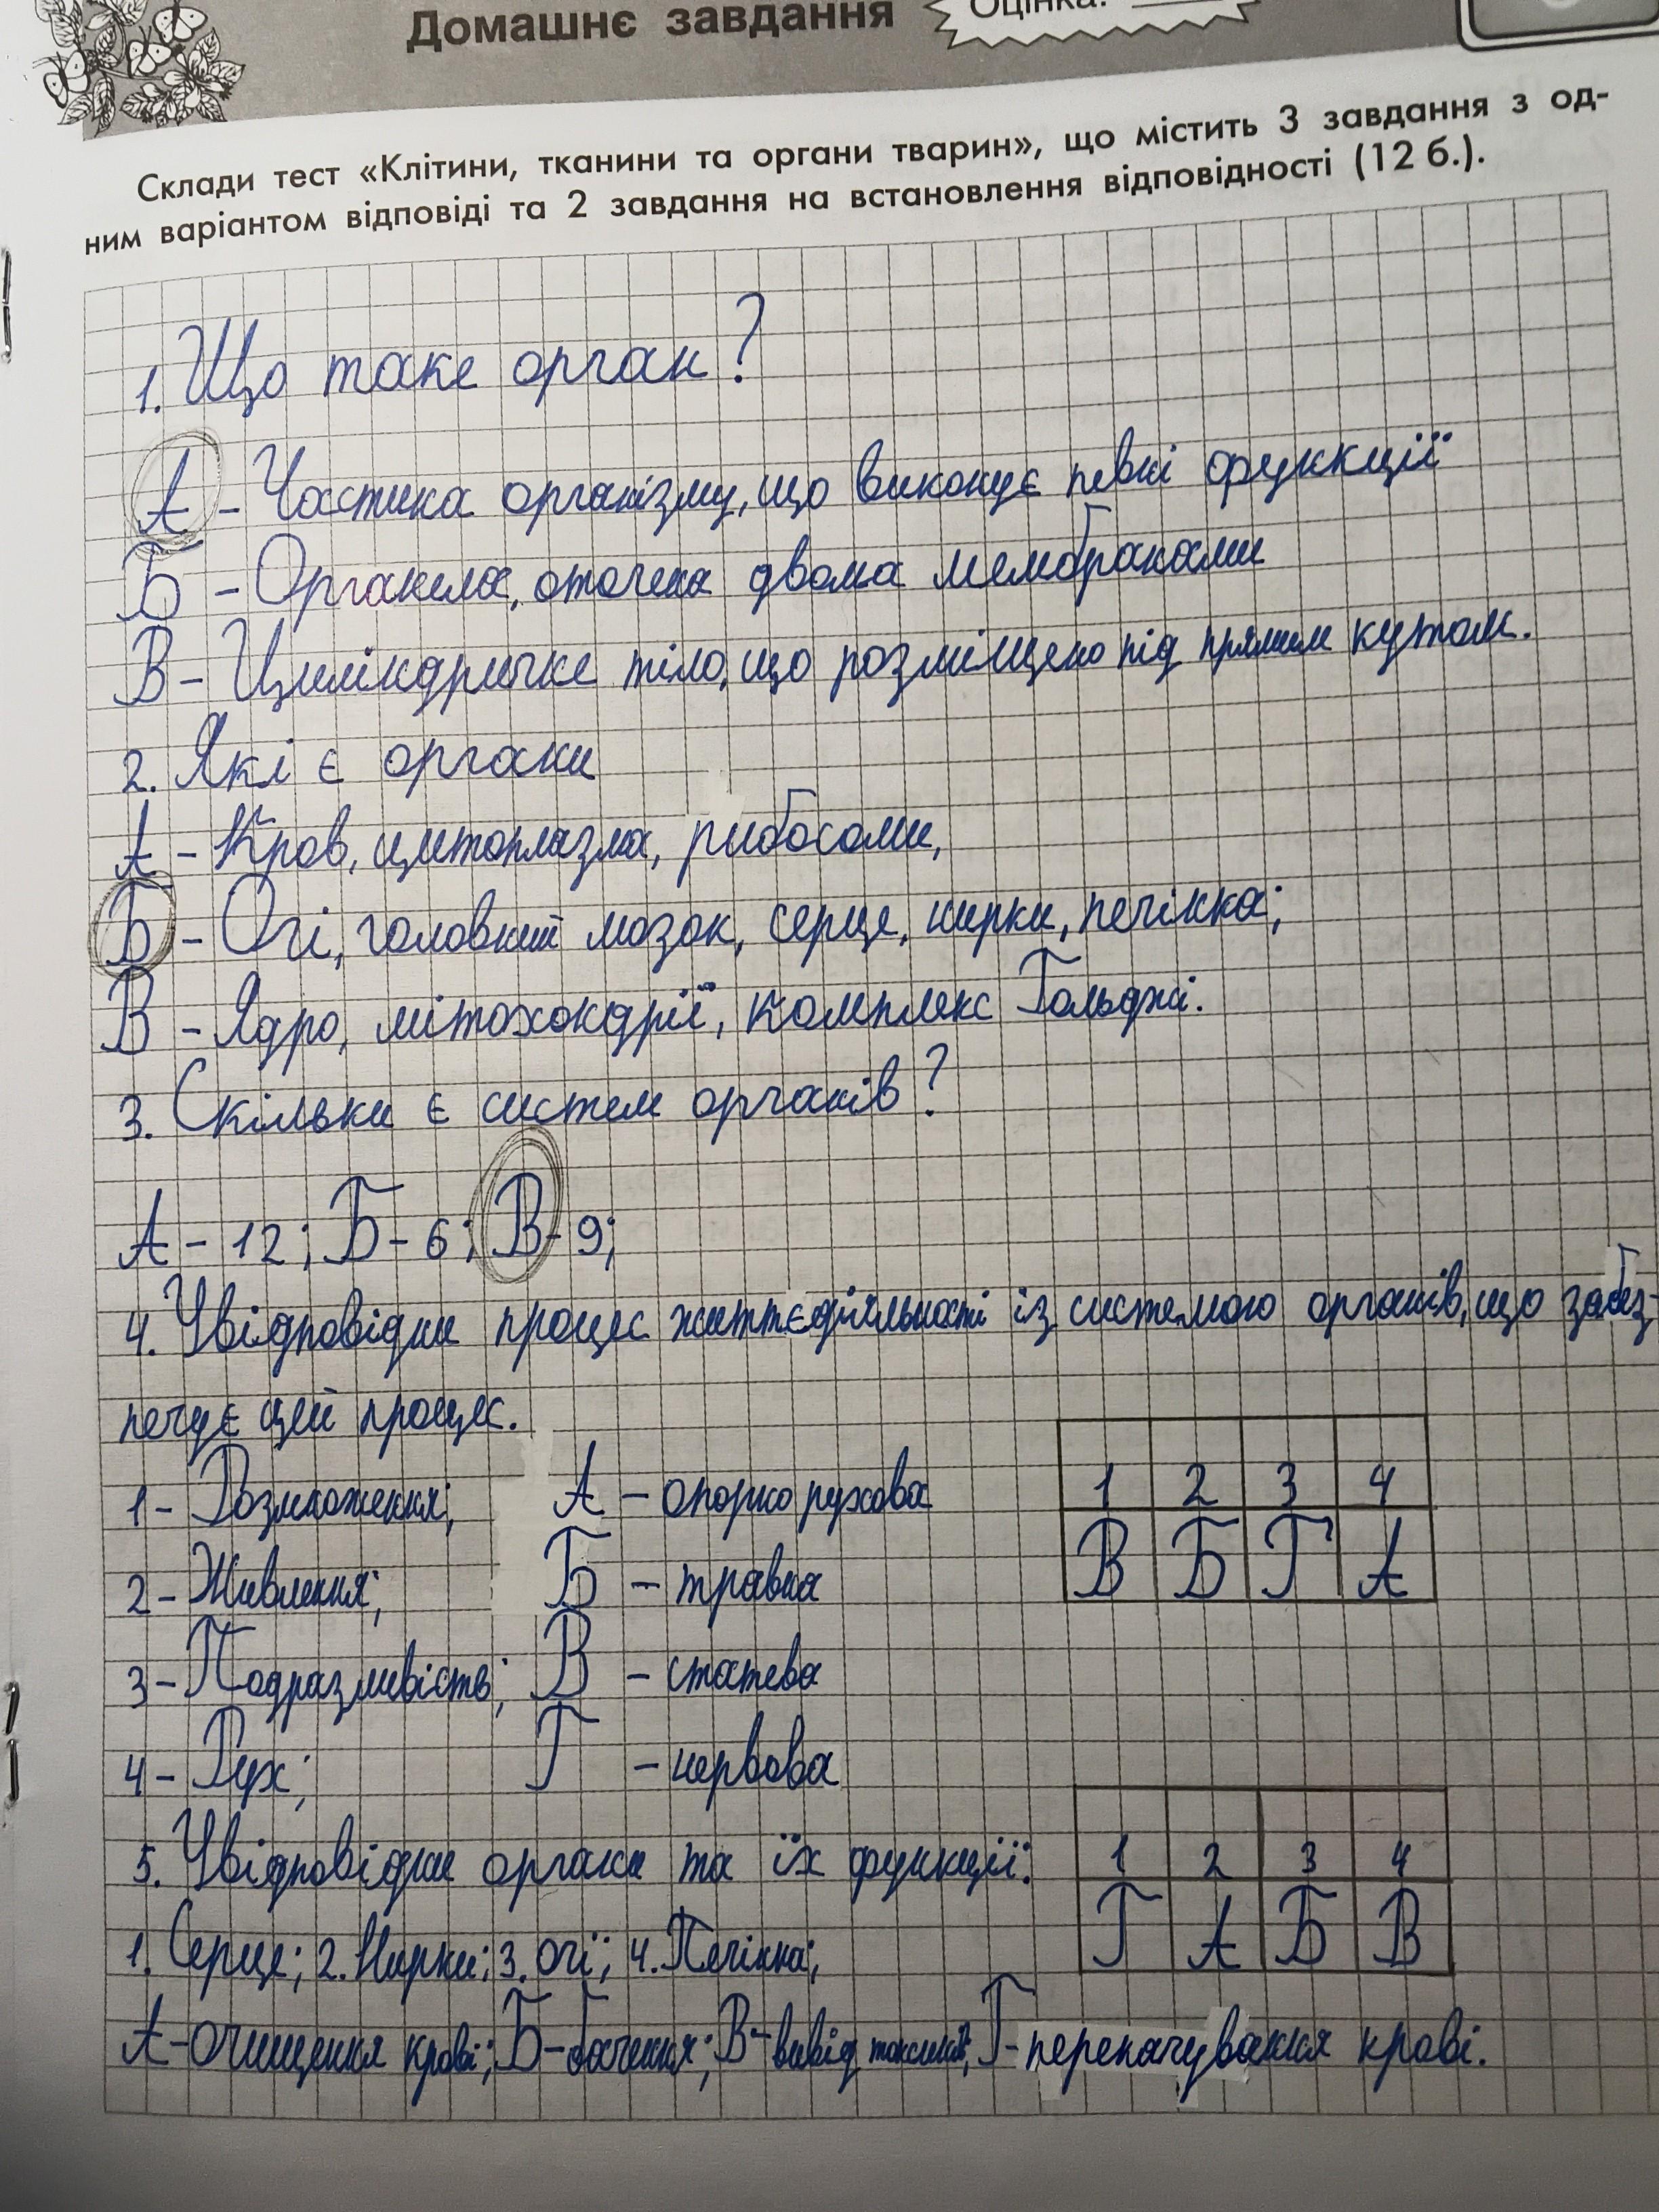 Домашнє завдання
Оцінка:
Склади тест «Клітини, тканини та органи тварин», що містить 3 завдання з од-
ним варіантом відповіді та 2 завдання на встановлення відповідності (12 б.).
1. Що таке орган?
А - Частина організму, що виконує певні функції
Б - Органела, оточена двома мембранами
В - Циліндричне тіло, що розміщено під прямим кутом.
2. Які є органи
А - Кров, цитоплазма, рибосоми,
Б - Очі, головний мозок, серце, нирки, печінка;
В - Ядро, мітохондрії, комплекс Гольджі.
3. Скільки є систем органів?
А - 12; Б - 6; В - 9;
4. Увідповідни процес життєдіяльності із системою органів, що забез-
печує цей процес.
1 - Розмноження; А - опорно рухова
2 - Живлення; Б - травна
3 - Подразливість; В - статева
4 - Рух; Г - нервова
1 2 3 4
В Б Г А
5. Увідповідни органи та їх функції:
1. Серце; 2. Нирки; 3. Очі; 4. Печінка;
А - очищення крові; Б - бачення; В - вивід токсинів; Г - перекачування крові.
1 2 3 4
Г А Б В